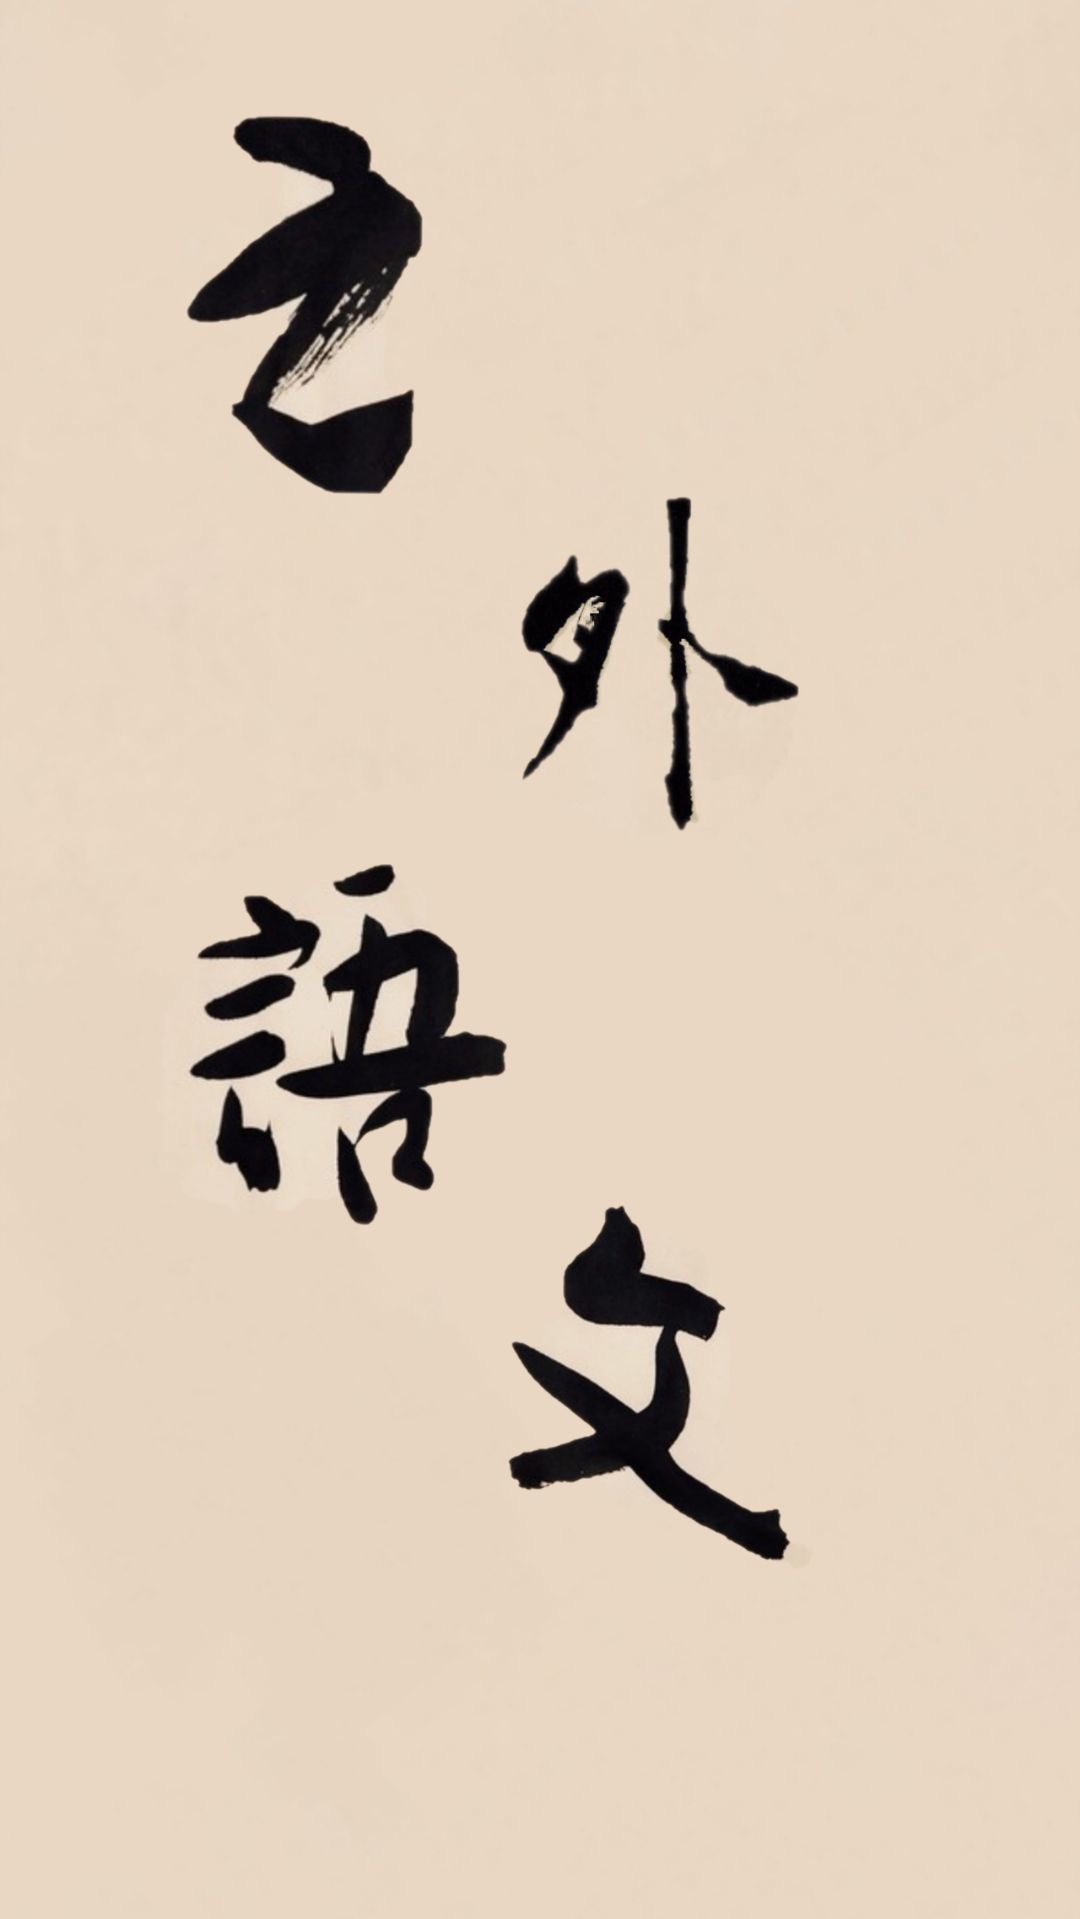 之
外
語
文